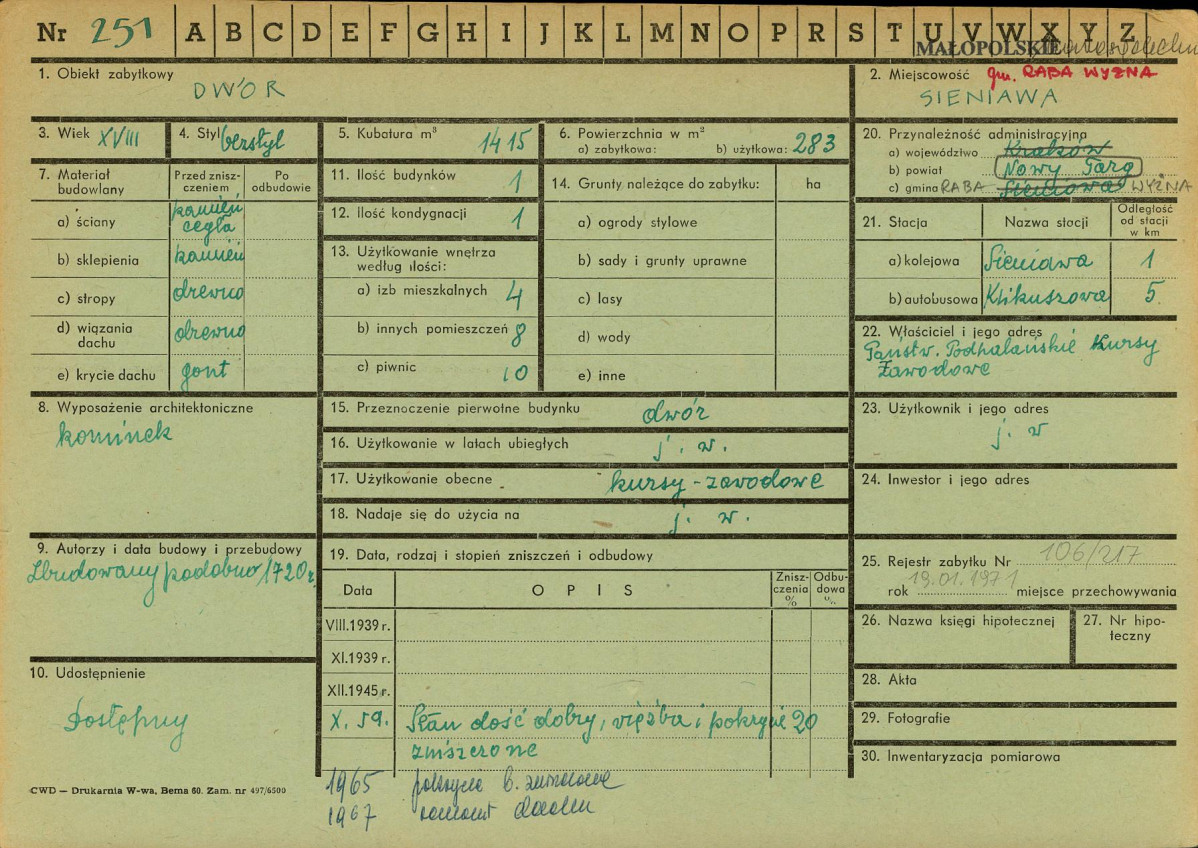 Nr 251 A B C D E F G H I J K L M N O P R S T U V W X Y Z
MAŁOPOLSKIE
1. Obiekt zabytkowy
DWÓR
2. Miejscowość gm. RABA WYŻNA
SIENIAWA
3. Wiek XVIII
4. Styl bezstyl
5. Kubatura m³ 1415
6. Powierzchnia w m²
a) zabytkowa: b) użytkowa: 283
7. Materiał budowlany
Przed znisz-
czeniem
Po
odbudowie
a) ściany kamień
cegła
b) sklepienia kamień
c) stropy drewno
d) wiązania
dachu drewno
e) krycie dachu gont
8. Wyposażenie architektoniczne
kominek
9. Autorzy i data budowy i przebudowy
Zbudowany podobno 1720 r.
10. Udostępnienie
Dostępny
CWD — Drukarnia W-wa, Bema 60. Zam. nr 497/6500
11. Ilość budynków 1
12. Ilość kondygnacji 1
13. Użytkowanie wnętrza
według ilości:
a) izb mieszkalnych 4
b) innych pomieszczeń 8
c) piwnic 10
14. Grunty należące do zabytku: ha
a) ogrody stylowe
b) sady i grunty uprawne
c) lasy
d) wody
e) inne
15. Przeznaczenie pierwotne budynku dwór
16. Użytkowanie w latach ubiegłych j. w.
17. Użytkowanie obecne kursy-zawodowe
18. Nadaje się do użycia na j. w.
19. Data, rodzaj i stopień zniszczeń i odbudowy
Data OPIS
Znisz-
czenia
%
Odbu-
dowa
%
VIII.1939 r.
XI.1939 r.
XII.1945 r.
X. 59. Stan dość dobry, więźba i pokrycie 20
zniszczone
1965 pokrycie b. zniszczone
1967 remont dachu
20. Przynależność administracyjna
a) województwo Kraków
b) powiat Nowy Targ
c) gmina RABA Sieniawa WYŻNA
21. Stacja
Nazwa stacji
Odległość
od stacji
w km
a) kolejowa Sieniawa 1
b) autobusowa Klikuszowa 5
22. Właściciel i jego adres
Państw. Podhalańskie Kursy
Zawodowe
23. Użytkownik i jego adres
j. w
24. Inwestor i jego adres
25. Rejestr zabytku Nr 106/217
rok 19.01.1971 miejsce przechowywania
26. Nazwa księgi hipotecznej
27. Nr hipo-
teczny
28. Akta
29. Fotografie
30. Inwentaryzacja pomiarowa